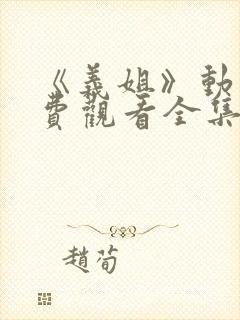 《義姐》動
費觀看全集
趙荀